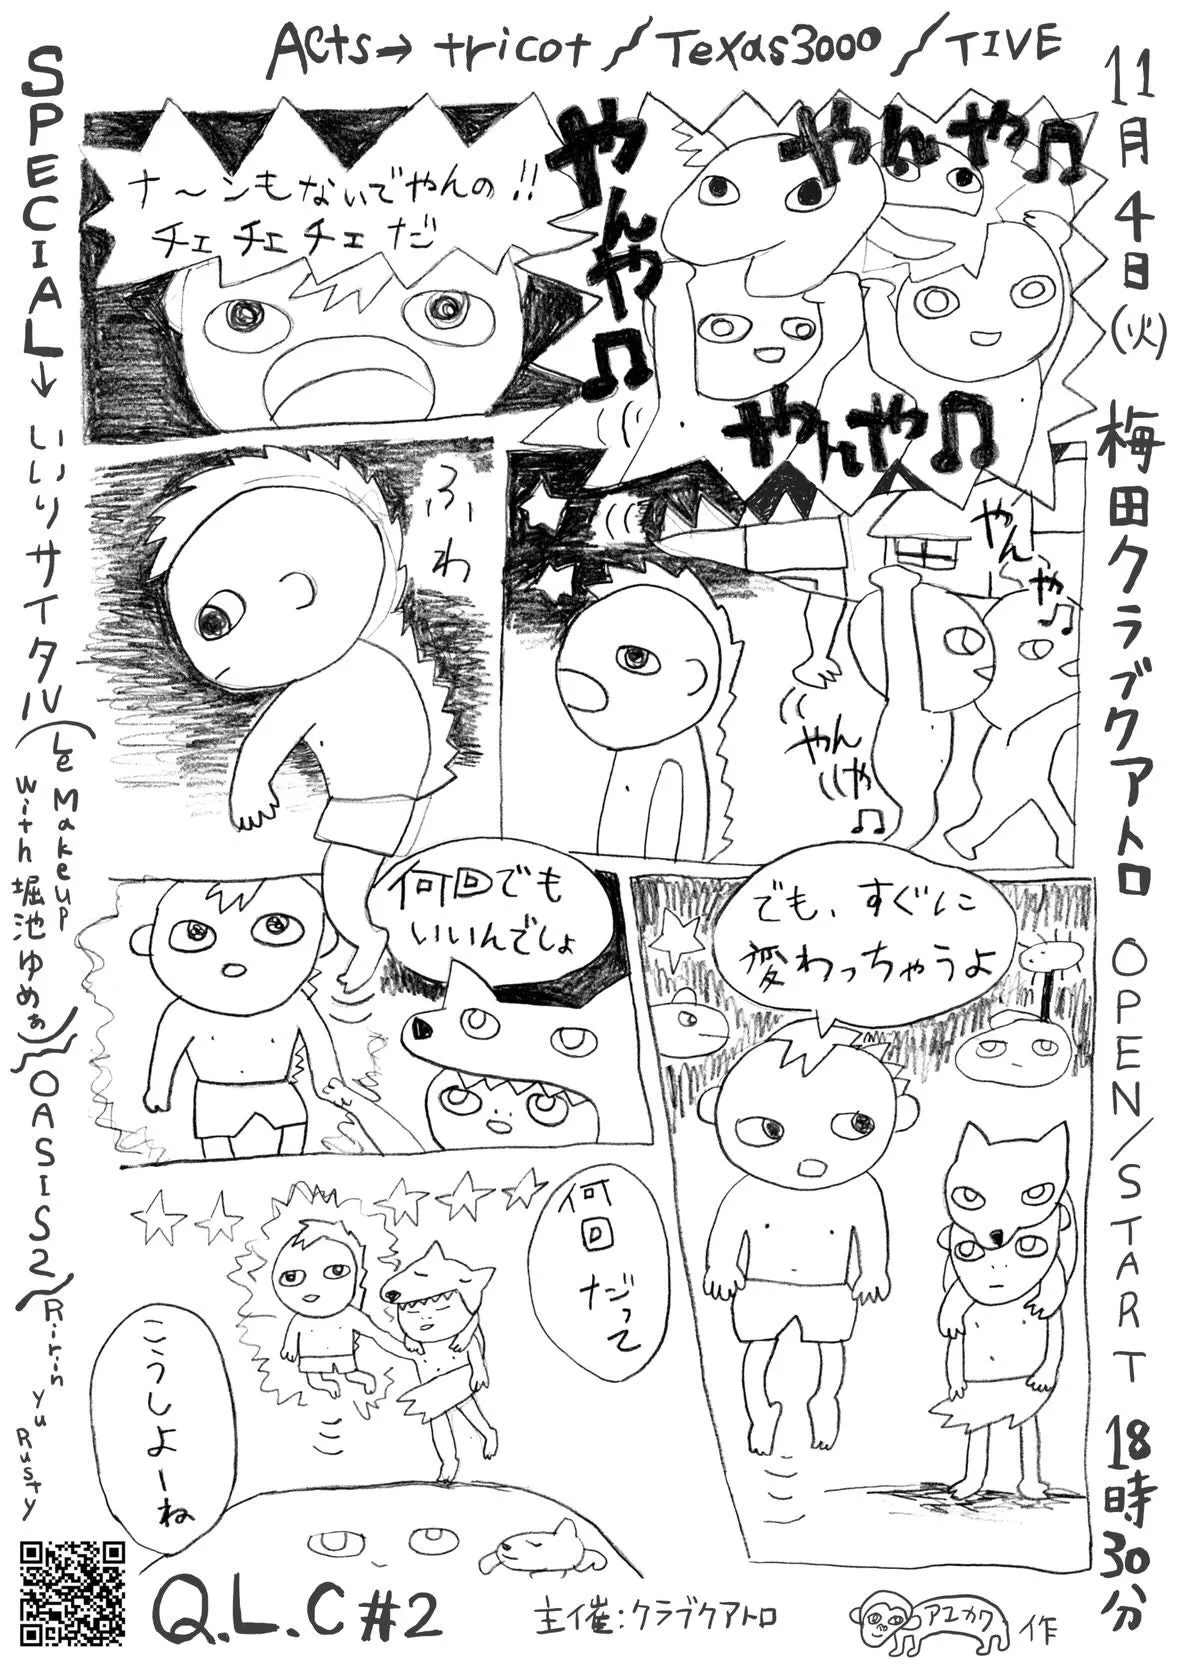 Acts→ tricot / Texas3000 / TIVE
11月4日(火) 梅田クラブクアトロ OPEN/START 18時30分
SPECIAL→ いいリサイタル(Le Makeup with 堀池ゆめぁ)/OASIS2/Ririn yu Rusty
やんや♫
やんや♫
やんや♫
ナ〜ンもないでやんの!!
チェ チェ チェ だ
やんや♫
やんや♫
ふわ
でも、すぐに
変わっちゃうよ
何回でも
いいんでしょ
何回だって
こうしよーね
Q.L.C #2
主催:クラブクアトロ
アエカワ 作